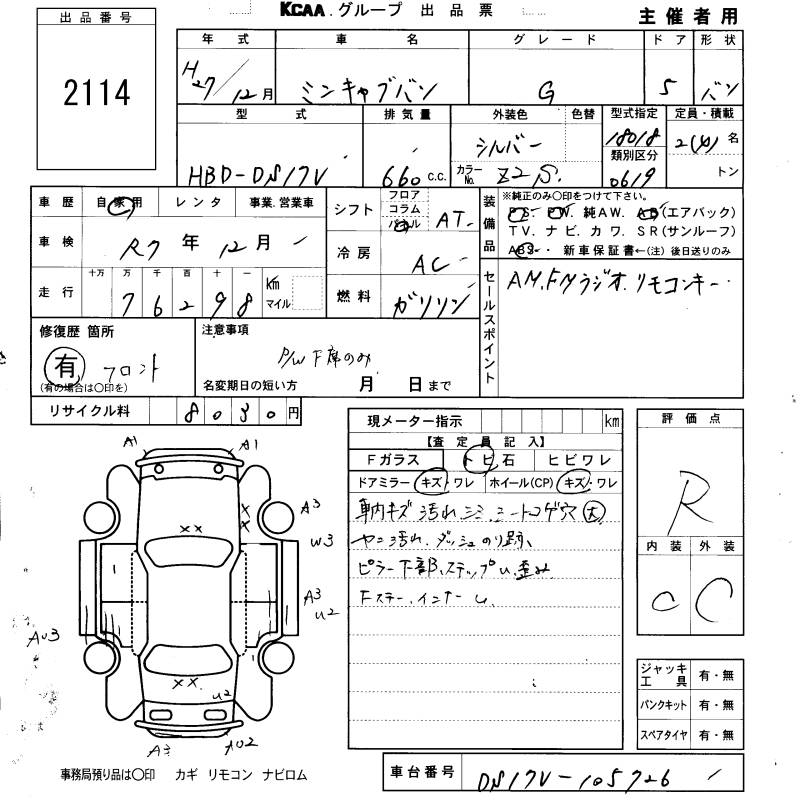 KCAA.グループ 出品票
主催者用
出品番号
2114
年式 車名 グレード ドア 形状
H27/12月 ミニキャブバン G 5 バン
型式 排気量 外装色 色替 型式指定 定員・積載
HBD-DS17V 660 c.c. シルバー カラーNo. Z2S. 18018 類別区分 0619 2(4)名 トン
車歴 自家用 レンタ 事業.営業車
車検 R7年12月
走行 十万 万 千 百 十 一 km マイル
76298
シフト フロア コラム パネル AT
冷房 AC
燃料 ガソリン
装備品 ※純正のみ〇印をつけて下さい。
PS・PW.純AW.AB(エアバック)
TV.ナビ.カワ.SR(サンルーフ)
ABS・新車保証書←(注)後日送りのみ
セールスポイント
AM.FMラジオ.リモコンキー
修復歴 箇所
有 フロント
(有の場合は〇印を)
注意事項
P/W F席のみ
名変期日の短い方 月 日まで
リサイクル料 8030円
現メーター指示 km
【査定員記入】
Fガラス トビ石 ヒビワレ
ドアミラー キズ・ワレ ホイール(CP) キズ・ワレ
車内キズ 汚れ シミ.シートコゲ穴 大
ヤニ汚れ.ダッシュのり跡、
ピラー下部、ステップU.歪み
Fステー.インナーU.
評価点
R
内装 外装
C C
ジャッキ工具 有・無
パンクキット 有・無
スペアタイヤ 有・無
A1 A1
××
A3
W3
A3
U2
AU3
××
U2
A3 AU2
事務局預り品は〇印 カギ リモコン ナビロム
車台番号 DS17V-105726